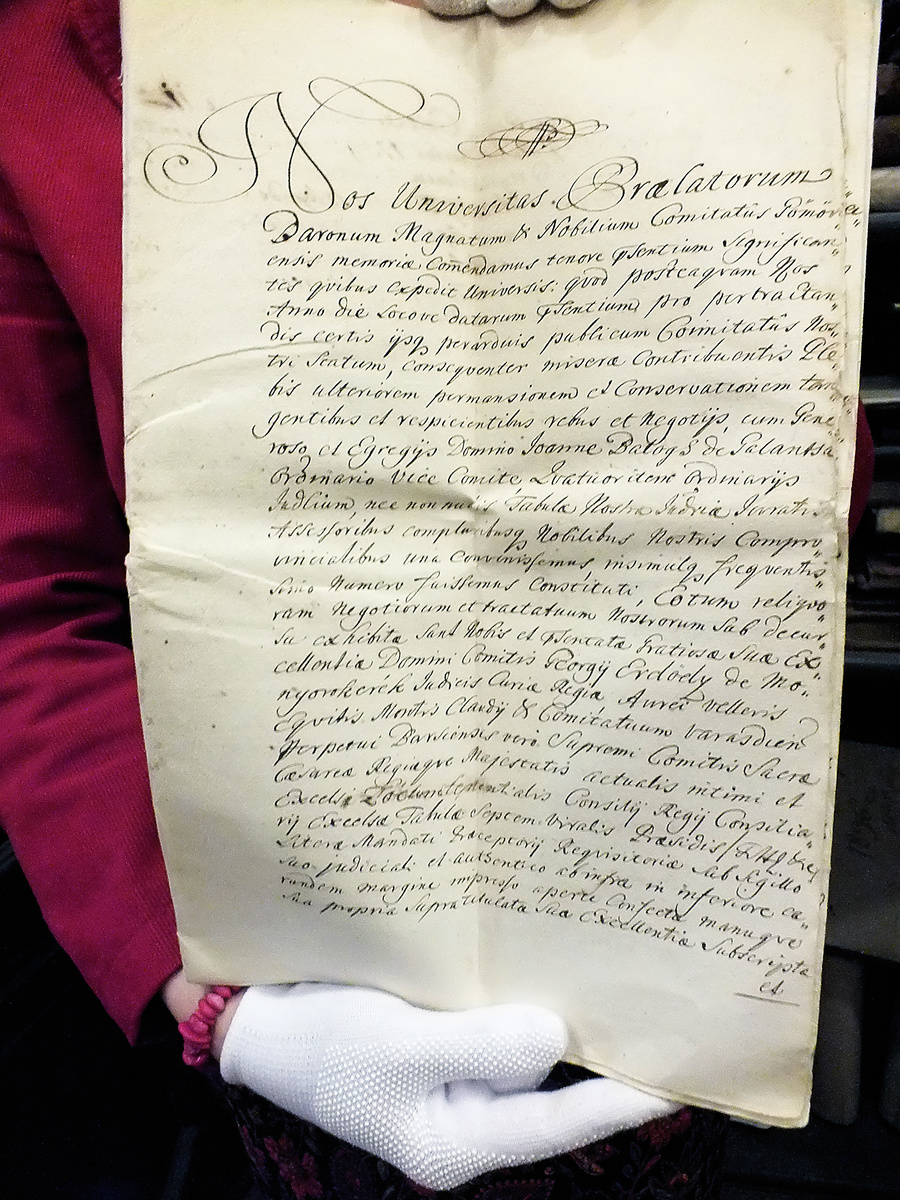 Nos Universitas Prælatorum
Baronum Magnatum & Nobilium Comitatûs Pômôri
ensis memoriæ Com̄endamus tenore p̄sentium Significan„
tes quibus expedit Universis: quod posteaquam Nos
Anno die Locove datarum p̄sentium, pro pertractan„
dis certis ijsq perarduis publicum Comitatûs Nos„
tri Statum, consequenter miseræ Contribuentis Ple„
bis ulteriorem permansionem et Conservationem tan„
gentibus et respicientibus rebus et Negotijs, cum Gene„
roso, et Egregijs Domino Joanne Balogh de Galantha
Ordinario Vice Comite Quatuor item Ordinarijs
Judlium, nec non Tabulæ Nostræ Judriæ Juratis
Assessoribus compluribusq Nobilibus Nostris Compro„
vincialibus una convenissemus insimulq frequentis„
simo Numero fuissemus Constituti, Eotum reliquo„
rum Negotiorum et tractatuum Nostrorum Sub decur„
su exhibitæ sunt Nobis et p̄sentatæ Gratiosæ Suæ Ex„
cellentiæ Domini Comitis Georgij Erdödy de Mo„
nyorokerék Judicis Curiæ Regiæ, Aurei Velleris
Equitis, Montis Claudij & Comitatuum Varasdien
Perpetui Barsiensis verò Supremi Comitis Sacræ
Cæsareæ Regiæque Majestatis actualis intimi et
Excelsi Locumtenentialis Consilij Regij Consilia„
rij Excelsæ Tabulæ Septem Viralis Præsidis
Literæ Mandati Præceptorij Requisitoriæ sub Sigillo
suo judiciali et authentico ab infra in inferiore ea„
rundem margine impresso aperte Confectæ manuque
sua propria Supratitulatæ Suæ Excellentiæ Subscripta
et